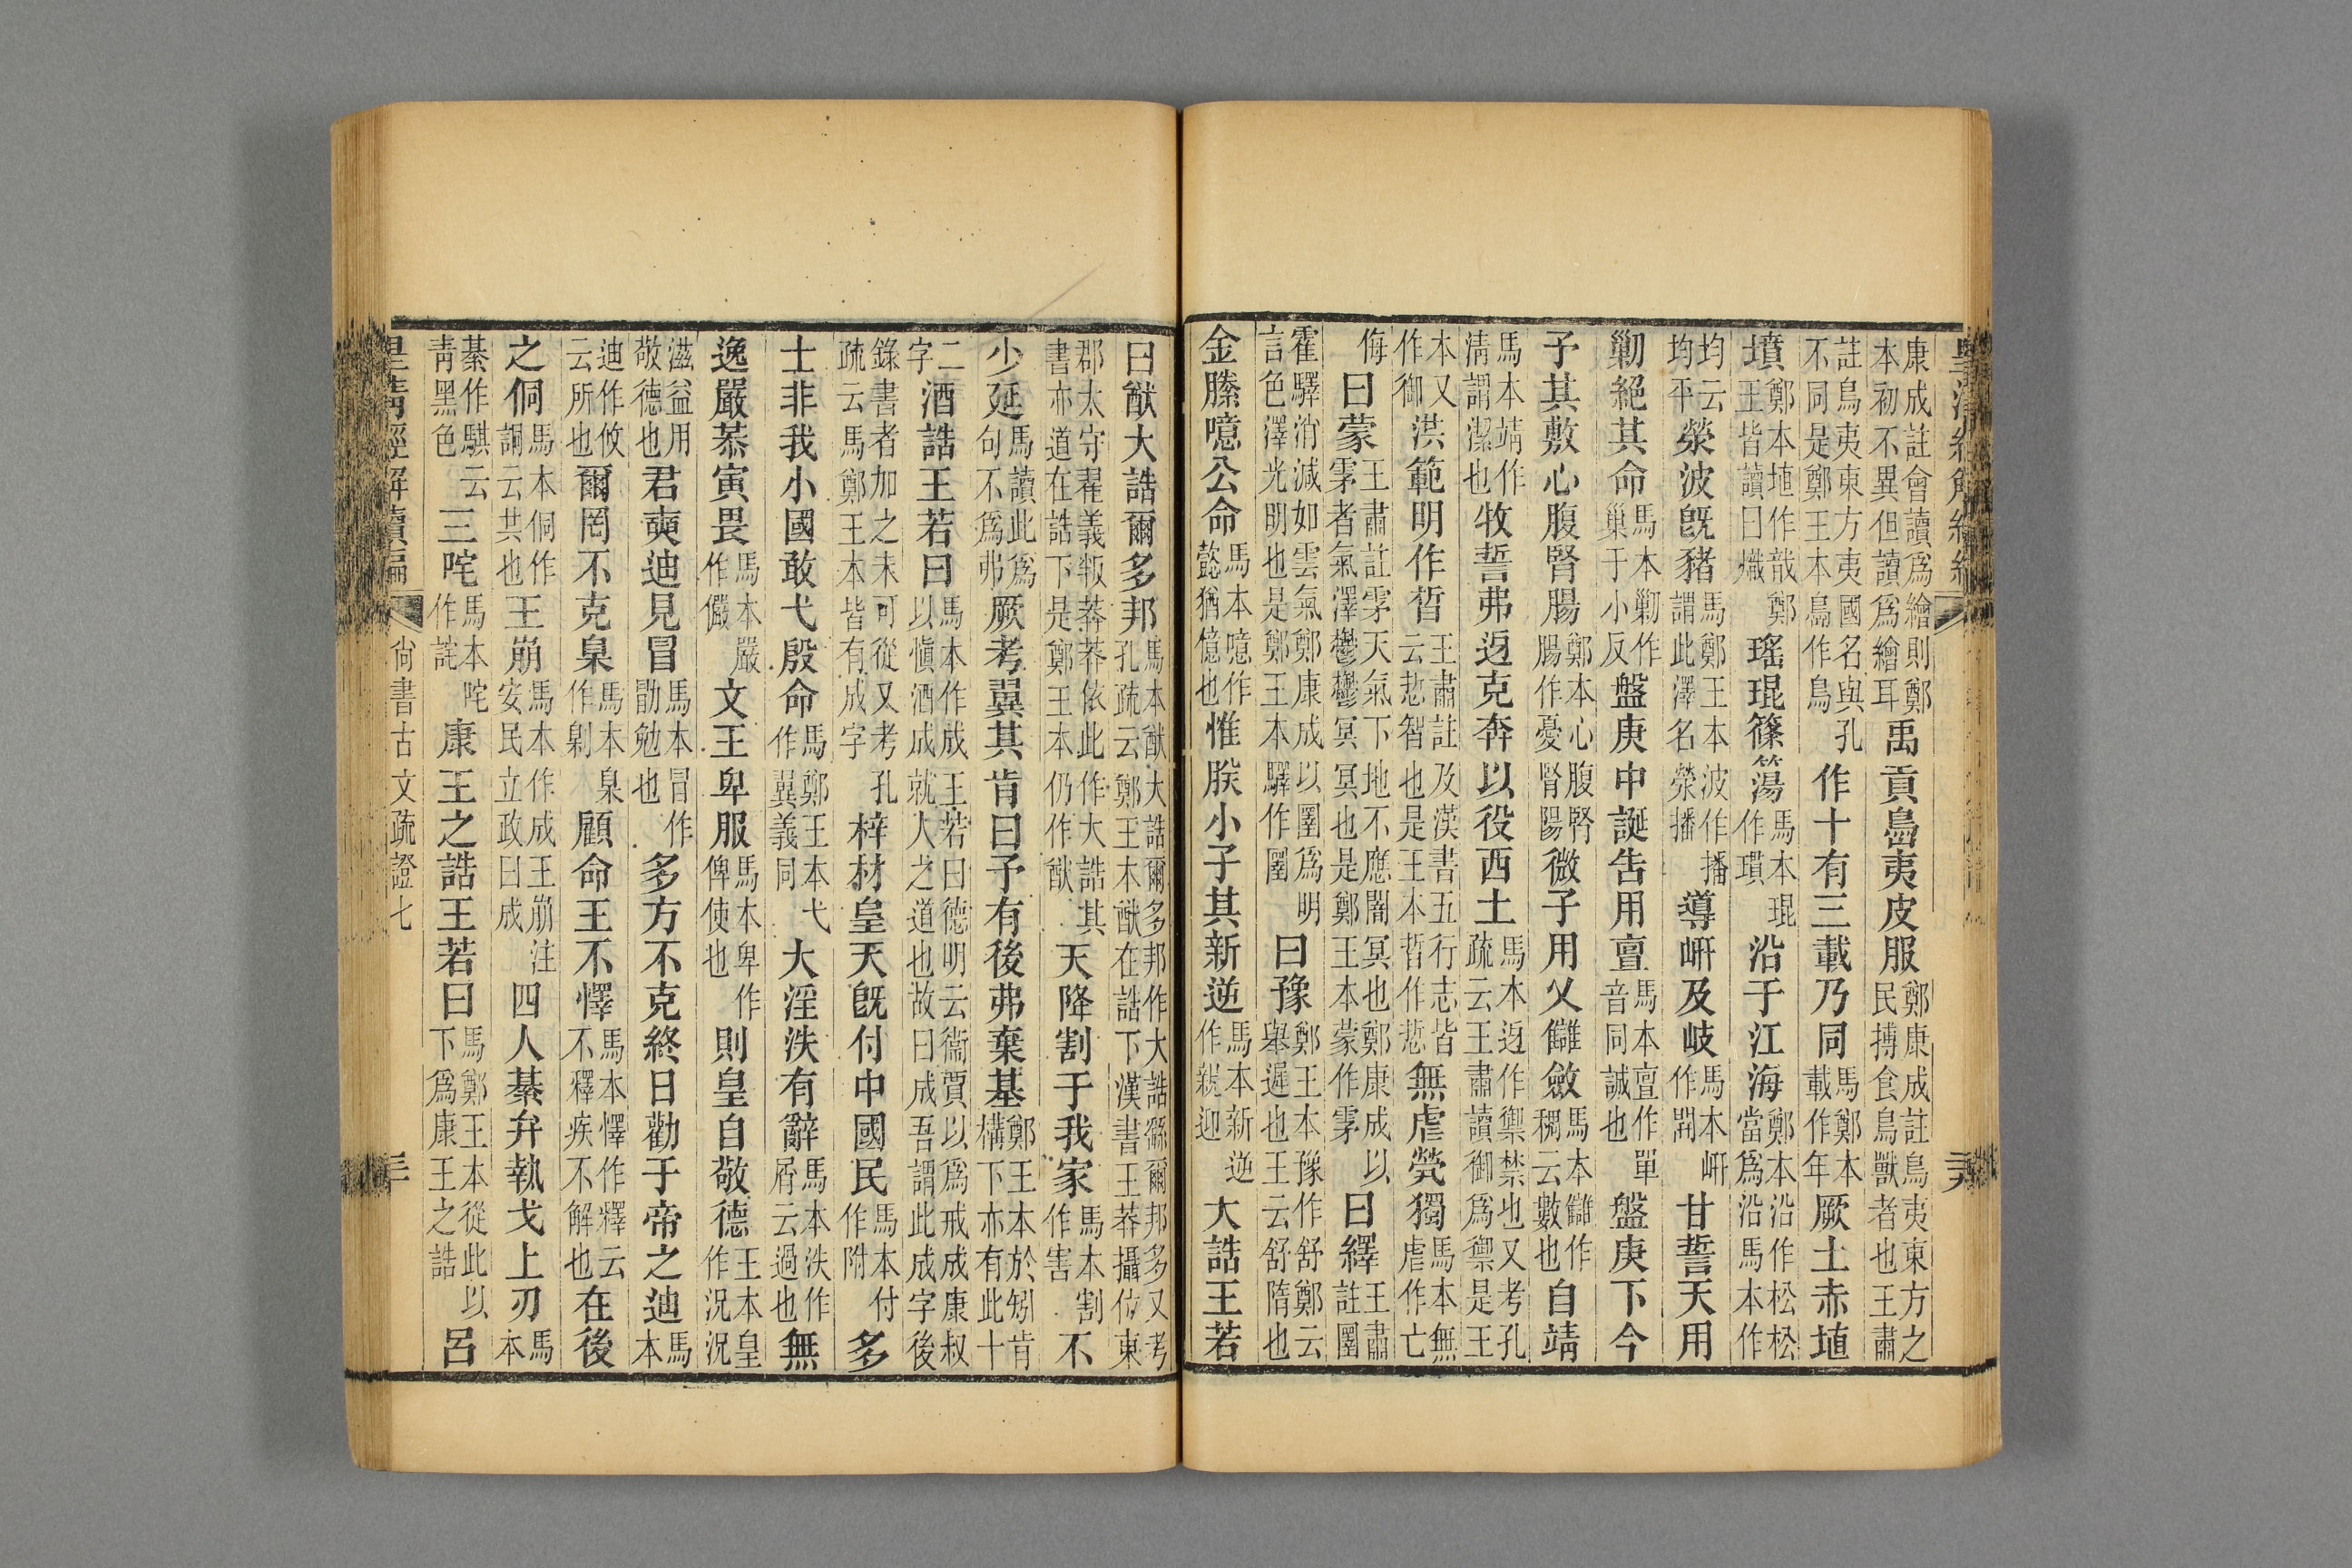 康成註會讀爲繪則鄭本初不異但讀爲繪耳禹貢島夷皮服鄭康成註鳥夷東方之民搏食鳥獸者也王肅
註鳥夷東方夷國名與孔不同是鄭王本島作鳥作十有三載乃同馬鄭本載作年厥土赤埴
墳鄭本埴作戠鄭王皆讀曰熾瑤琨篠簜馬本琨作瑻沿于江海鄭本沿作松松當爲沿馬本作
均云均平滎波旣豬馬鄭王本波作播謂此澤名滎播導岍及岐馬本岍作開甘誓天用
勦絕其命馬本勦作巢于小反盤庚中誕告用亶馬本亶作單音同誠也盤庚下今
予其敷心腹腎腸鄭本心腹腎腸作憂腎陽微子用乂讎斂馬本讎作稠云數也自靖
馬本靖作清謂潔也牧誓弗迓克奔以役西土馬本迓作禦禁也又考孔疏云王肅讀御爲禦是王
本又作御洪範明作晢王肅註及漢書五行志皆云悊智也是王本晢作悊無虐煢獨馬本無虐作亡
侮曰蒙王肅註雺天氣下地不應闇冥也鄭康成以雺者氣澤鬱鬱冥冥也是鄭王本蒙作雺曰繹王肅註圛
霍驛消減如雲氣鄭康成以圛爲明言色澤光明也是鄭王本驛作圛曰豫鄭王本豫作舒鄭云舉遲也王云舒隋也
金縢噫公命馬本噫作懿猶億也惟朕小子其新逆馬本新逆作親迎大誥王若
曰猷大誥爾多邦馬本猷大誥爾多邦作大誥繇爾邦多又考孔疏云鄭王本猷在誥下漢書王莽攝位東
郡太守翟義叛莽莽依此作大誥其書亦道在誥下是鄭王本仍作猷天降割于我家馬本割作害不
少延馬讀此爲句不爲弗厥考翼其肯曰予有後弗棄基鄭王本於矧肯構下亦有此十
二字酒誥王若曰馬本作成王若曰德明云衞賈以爲戒成康叔以愼酒成就人之道也故曰成吾謂此成字後
錄書者加之未可從又考孔疏云馬鄭王本皆有成字梓材皇天旣付中國民馬本付作附多
士非我小國敢弋殷命馬鄭王本弋作翼義同大淫泆有辭馬本泆作屑云過也無
逸嚴恭寅畏馬本嚴作儼文王卑服馬本卑作俾使也則皇自敬德王本皇作況況
滋益用敬德也君奭迪見冒馬本冒作勖勉也多方不克終日勸于帝之迪馬本
迪作攸云所也爾罔不克臬馬本臬作劓顧命王不懌馬本懌作釋云不釋疾不解也在後
之侗馬本侗作詷云共也王崩馬本作成王崩注安民立政曰成四人綦弁執戈上刃馬本
綦作騏云靑黑色三咤馬本咤作詫康王之誥王若曰馬鄭王本從此以下爲康王之誥呂
皇淸經解續編
尙書古文疏證七